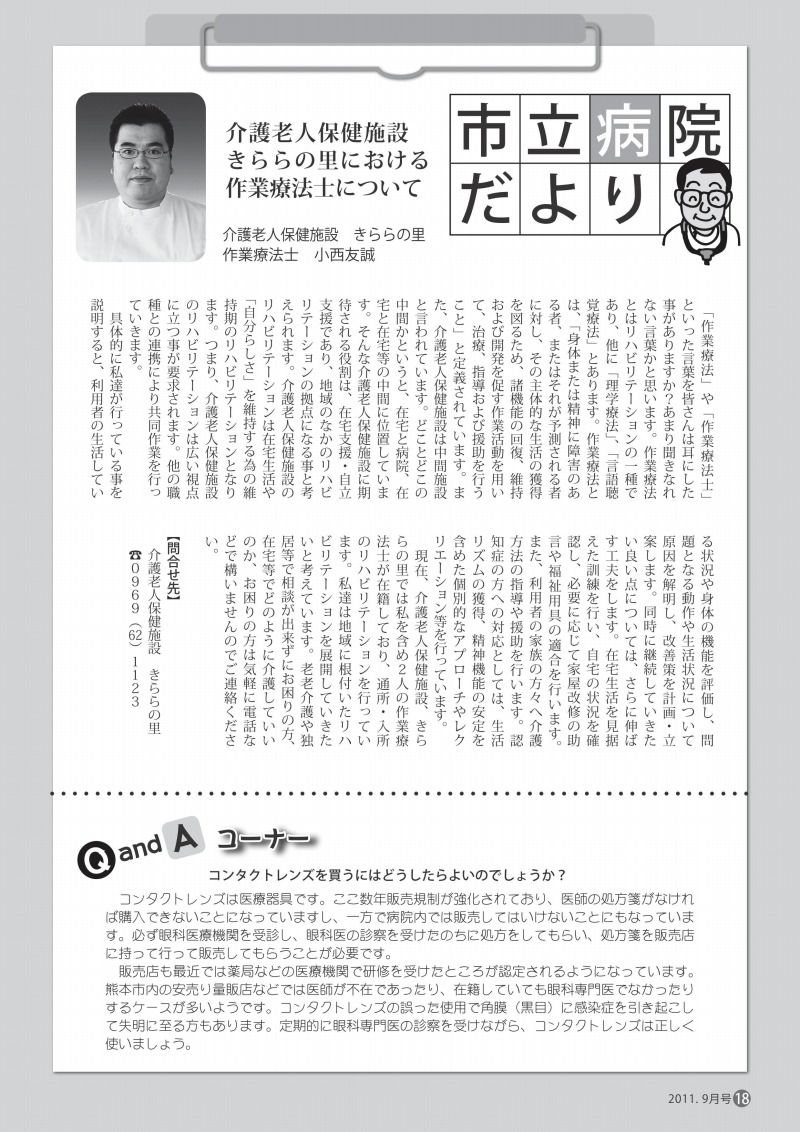 市立病院
だより
介護老人保健施設
きららの里における
作業療法士について
介護老人保健施設　きららの里
作業療法士　小西友誠
「作業療法」や「作業療法士」
といった言葉を皆さんは耳にした
事がありますか？あまり聞きなれ
ない言葉かと思います。作業療法
とはリハビリテーションの一種で
あり、他に「理学療法」、「言語聴
覚療法」とあります。作業療法と
は、「身体または精神に障害のあ
る者、またはそれが予測される者
に対し、その主体的な生活の獲得
を図るため、諸機能の回復、維持
および開発を促す作業活動を用い
て、治療、指導および援助を行う
こと」と定義されています。ま
た、介護老人保健施設は中間施設
と言われています。どことどこの
中間かというと、在宅と病院、在
宅と在宅等の中間に位置していま
す。そんな介護老人保健施設に期
待される役割は、在宅支援・自立
支援であり、地域のなかのリハビ
リテーションの拠点になる事と考
えられます。介護老人保健施設の
リハビリテーションは在宅生活や
「自分らしさ」を維持する為の維
持期のリハビリテーションとなり
ます。つまり、介護老人保健施設
のリハビリテーションは広い視点
に立つ事が要求されます。他の職
種との連携により共同作業を行っ
ていきます。
具体的に私達が行っている事を
説明すると、利用者の生活してい
る状況や身体の機能を評価し、問
題となる動作や生活状況について
原因を解明し、改善策を計画・立
案します。同時に継続していきた
い良い点については、さらに伸ば
す工夫をします。在宅生活を見据
えた訓練を行い、自宅の状況を確
認し、必要に応じて家屋改修の助
言や福祉用具の適合を行います。
また、利用者の家族の方々へ介護
方法の指導や援助を行います。認
知症の方への対応としては、生活
リズムの獲得、精神機能の安定を
含めた個別的なアプローチやレク
リエーション等を行っています。
現在、介護老人保健施設、きら
らの里では私を含め２人の作業療
法士が在籍しており、通所・入所
のリハビリテーションを行ってい
ます。私達は地域に根付いたリハ
ビリテーションを展開していきた
いと考えています。老老介護や独
居等で相談が出来ずにお困りの方、
在宅等でどのように介護していい
のか、お困りの方は気軽に電話な
どで構いませんのでご連絡くださ
い。
【問合せ先】
介護老人保健施設　きららの里
☎０９６９（62）１１２３
Q and A コーナー
コンタクトレンズを買うにはどうしたらよいのでしょうか？
コンタクトレンズは医療器具です。ここ数年販売規制が強化されており、医師の処方箋がなけれ
ば購入できないことになっていますし、一方で病院内では販売してはいけないことにもなっていま
す。必ず眼科医療機関を受診し、眼科医の診察を受けたのちに処方をしてもらい、処方箋を販売店
に持って行って販売してもらうことが必要です。
販売店も最近では薬局などの医療機関で研修を受けたところが認定されるようになっています。
熊本市内の安売り量販店などでは医師が不在であったり、在籍していても眼科専門医でなかったり
するケースが多いようです。コンタクトレンズの誤った使用で角膜（黒目）に感染症を引き起こし
て失明に至る方もあります。定期的に眼科専門医の診察を受けながら、コンタクトレンズは正しく
使いましょう。
2011. 9月号 18